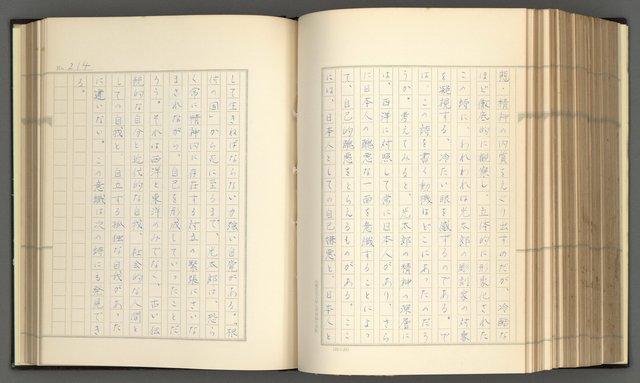 態・精神の内実をえぐり出すのだが、冷酷な
ほど徹底的に観察し、立体的に形象化された
この詩に、われわれは光太郎の彫刻家の対象
を凝視する、冷たい眼を感ずるのである。で
は、この詩を書く動機はどこにあったのだろ
うか。考えてみると、光太郎の精神の深層に
は、西洋に対照して常に日本人があり、さら
に日本人の醜悪な一面を意識することによっ
て、自己的醜悪をとらえるものがある。ここ
には、日本人としての自己嫌悪と、日本人と
No. 214
して生きねばならない力強い自覚がある。「根
付の国」から死に至るまで、光太郎は、恐ら
く常に精神的に存在する対立の緊張にさいな
まされながら、自己を形成していったことだ
ろう。それは西洋と東洋のみでなく、古い伝
統的な自分と近代的な自我、社会的な人間と
しての自我と、自立する孤独な自我があった
に違いない。この意識は次の詩にも発見でき
る。